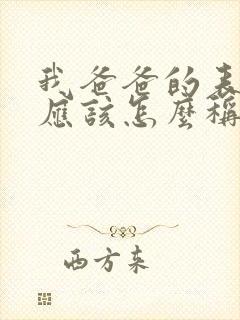 我爸爸的表
應該怎麼稱
西方来